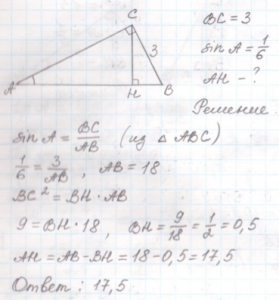 C
BC = 3
3
sin A = 1/6
A
H
B
AH - ?
Решение
sin A = BC/AB (из △ ABC)
1/6 = 3/AB, AB = 18
BC² = BH · AB
9 = BH · 18, BH = 9/18 = 1/2 = 0,5
AH = AB - BH = 18 - 0,5 = 17,5
Ответ: 17,5